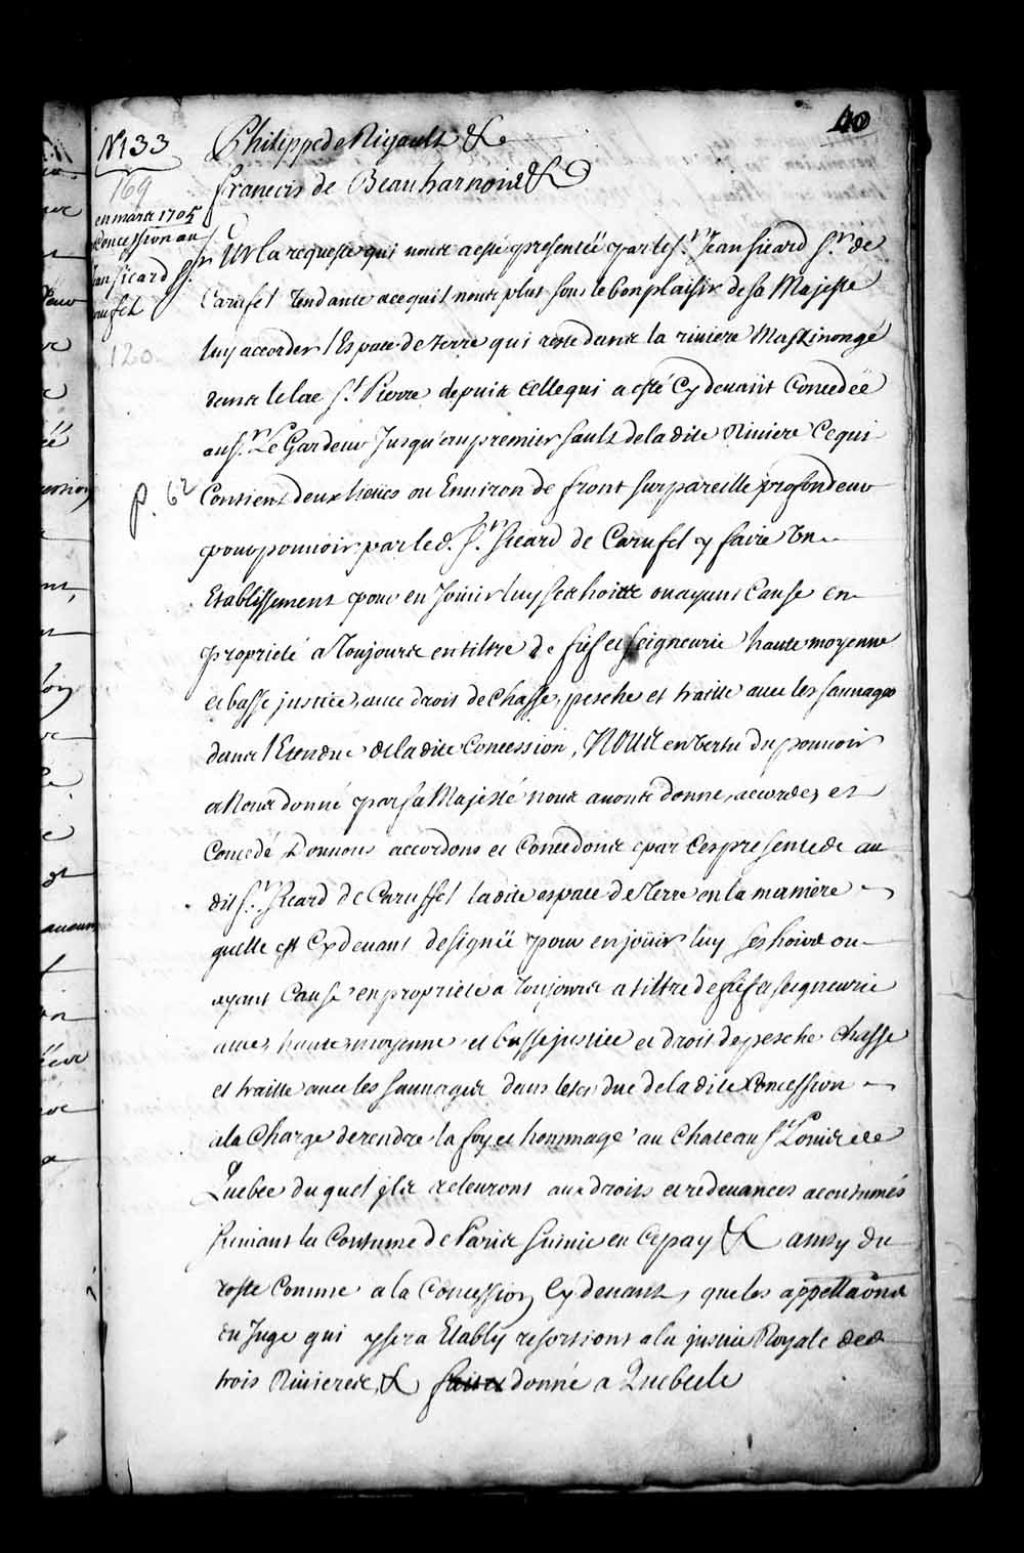 40
N 133
169
en mars 1705
Concession au
Jean Sicard Sr.
rufel
120
p. 62
Philippe de Rigault &c
francois de Beauharnois &c
Sur la requeste qui nous a esté presenteë par le Sr. Jean Sicard Sr. de
Carufel Tendante a ce quil nous plut sous le bon plaisir de Sa Majeste
luy accorder l'Espace de terre qui reste dans la riviere Maskinongé
dans le lac St. Pierre depuis celle qui a esté Cy devant Concedeë
au Sr. Le Gardeur Jusqu'au premier sault de la dite Riviere Ce qui
Contient deux lieües ou Environ de front sur pareille profondeur
pour pouvoir par led. Sr. Sicard de Carufel y faire Un
Etablissement pour en Joüir luy ses hoirs ou ayans Cause en
propriété a Toujours en tiltre de fief et seigneurie haute moyenne
et basse justice, avec droit de Chasse, pesche et traitte avec les sauvages
dans l'Etendue de la dite Concession, NOUS en Vertu du pouvoir
a Nous donné par Sa Majesté nous avons donné, accordez et
Concedé Donnons accordons et Concedons par Ces presentes au
dit Sr. Sicard de Caruffel la dite espace de Terre en la maniere
quelle est Cy devant designeë pour en joüir luy ses hoirs ou
ayant Cause en propriété a Toujours a tiltre de fief et seigneurie
avec haute moyenne et basse justice et droit de pesche Chasse
et traitte avec les sauvages dans letendue de la dite Concession
a la Charge de rendre la foy et hommage au Chateau St. Louis de
Quebec duquel il releveront aux droits et redevances acoutumés
suivant la Coutume de Paris suivie en Ce pay &c ainsy du
reste Comme a la Concession Cy devant, que les appellaons
du Juge qui y sera Etably resortiront a la justice Royale des
trois Rivieres, &c fait et donné a Quebec le